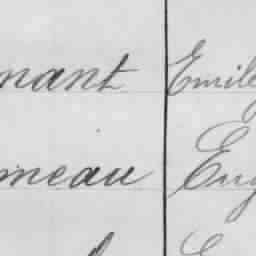 nant Emile
meau Eug